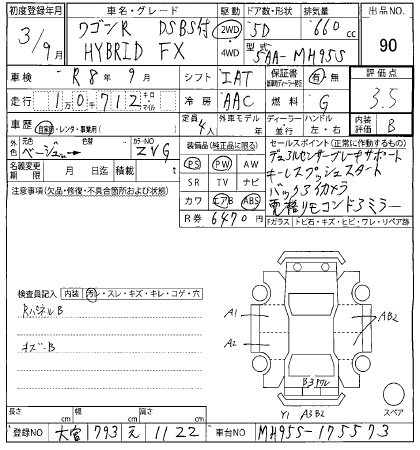 初度登録年月 車名・グレード 駆動 ドア数・形状 排気量 出品NO.
3/9月 ワゴンR DSBS付 2WD 5D 660cc 90
HYBRID FX 4WD 型式 5AA-MH95S
車検 R8年9月 シフト IAT 保証書 有・無 評価点
走行 1万0千712 キロ マイル 冷房 AAC 燃料 G 3.5
車歴 自家用・レンタ・事業用( ) 定員 4人 外車モデル 年 ディーラー 並行 ハンドル 左・右 内装評価 B
外色 元色 ベージュ 色替 カラーNO ZVG 装備品(純正品に限る) セールスポイント(正常に作動するもの)
名義変更期限 月 日迄 積載 t PS PW AW デュアルセンサーブレーキサポート
注意事項(欠品・修復・不具合箇所および状態) SR TV ナビ キーレスプッシュスタート
カワ エアB ABS バックアイカメラ
R券 6470円 電格リモコンドアミラー
Fガラス トビ石・キズ・ヒビ・ワレ・リペア跡
検査員記入 内装 汚レ・スレ・キズ・キレ・コゲ・穴
RパネルB
キズ-B
A1
A2
AB2
B3
Y1 A3B2
スペア
長さ cm 幅 cm 高さ cm
登録NO 大宮 793 え 1122 車台NO MH95S-175573